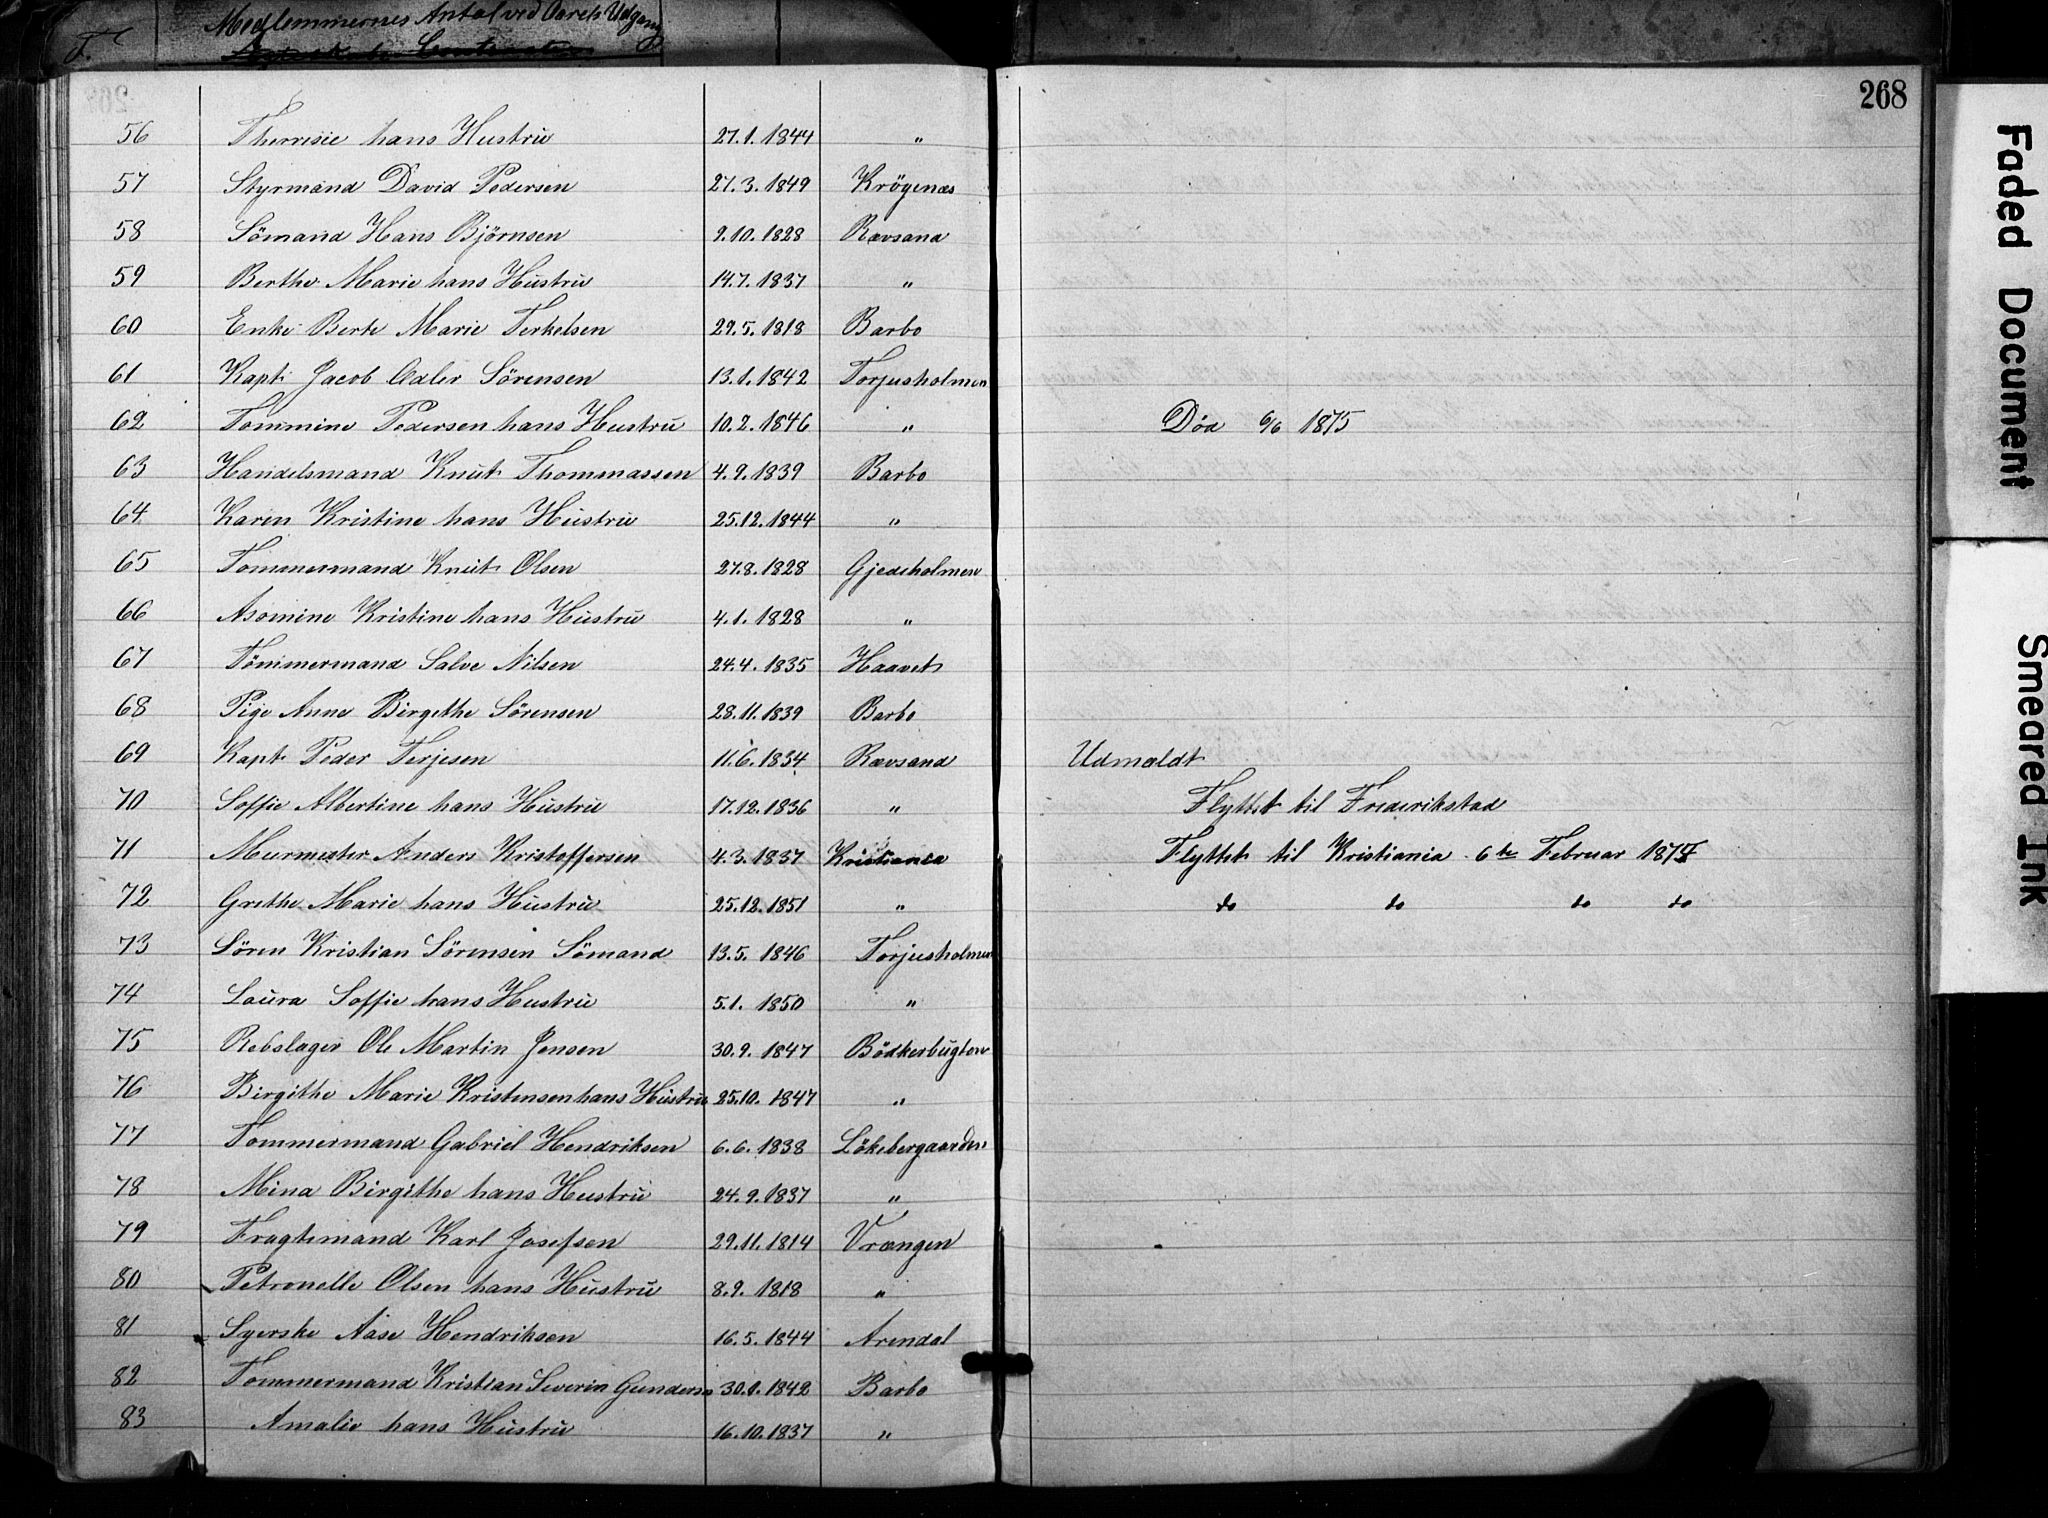 Medlemmernes Antal ved Aarets Udgang
F.
268
56 Therresie hans Hustru 27.1.1844 "
57 Styrmand David Pedersen 27.3.1849 Krögenæs
58 Sömand Hans Bjørnsen 9.10.1828 Rævsand
59 Berthe Marie hans Hustru 14.7.1837 "
60 Enke Berte Marie Terkelsen 29.5.1818 Barbo
61 Kapt. Jacob Adler Sörensen 13.1.1842 Torjusholmen
62 Tommine Pedersen hans Hustru 10.2.1846 " Død 6/6 1875
63 Handelsmand Knut Thommassen 4.9.1839 Barbo
64 Karen Kristine hans Hustru 25.12.1844 "
65 Tømmermand Knut Olsen 27.8.1828 Gjedeholmen
66 Asomine Kristine hans Hustru 4.1.1828 "
67 Tömmermand Salve Nilsen 24.4.1835 Haavet
68 Pige Anne Birgithe Sörensen 28.11.1839 Barbo
69 Kapt. Peder Terjesen 11.6.1834 Rævsand Udmeldt
70 Soffie Albertine hans Hustru 17.12.1836 " Flyttet til Frederikstad
71 Murmester Anders Kristoffersen 4.3.1837 Kristiania Flyttet til Kristiania 6te Februar
72 Grethe Marie hans Hustru 25.12.1851 " do do do do
73 Sören Kristian Sörensen Sömand 13.5.1846 Torjusholmen
74 Laura Soffie hans Hustru 5.1.1850 "
75 Rebslager Ole Martin Jensen 30.9.1847 Bödkerbugten
76 Birgithe Marie Kristensen hans Hustru 25.10.1847 "
77 Tommermand Gabriel Hendriksen 6.6.1838 Lökebergaarden
78 Mina Birgithe hans Hustru 24.9.1837 "
79 Fragtemand Karl Josefsen 29.11.1814 Vrængen
80 Petronelle Olsen hans Hustru 8.9.1818 "
81 Syerske Aase Hendriksen 16.5.1844 Arendal
82 Tommermand Kristian Severin Gundersn 30.1.1842 Barbo
83 Amalie hans Hustru 16.10.1837 "
Faded Document
Smeared Ink